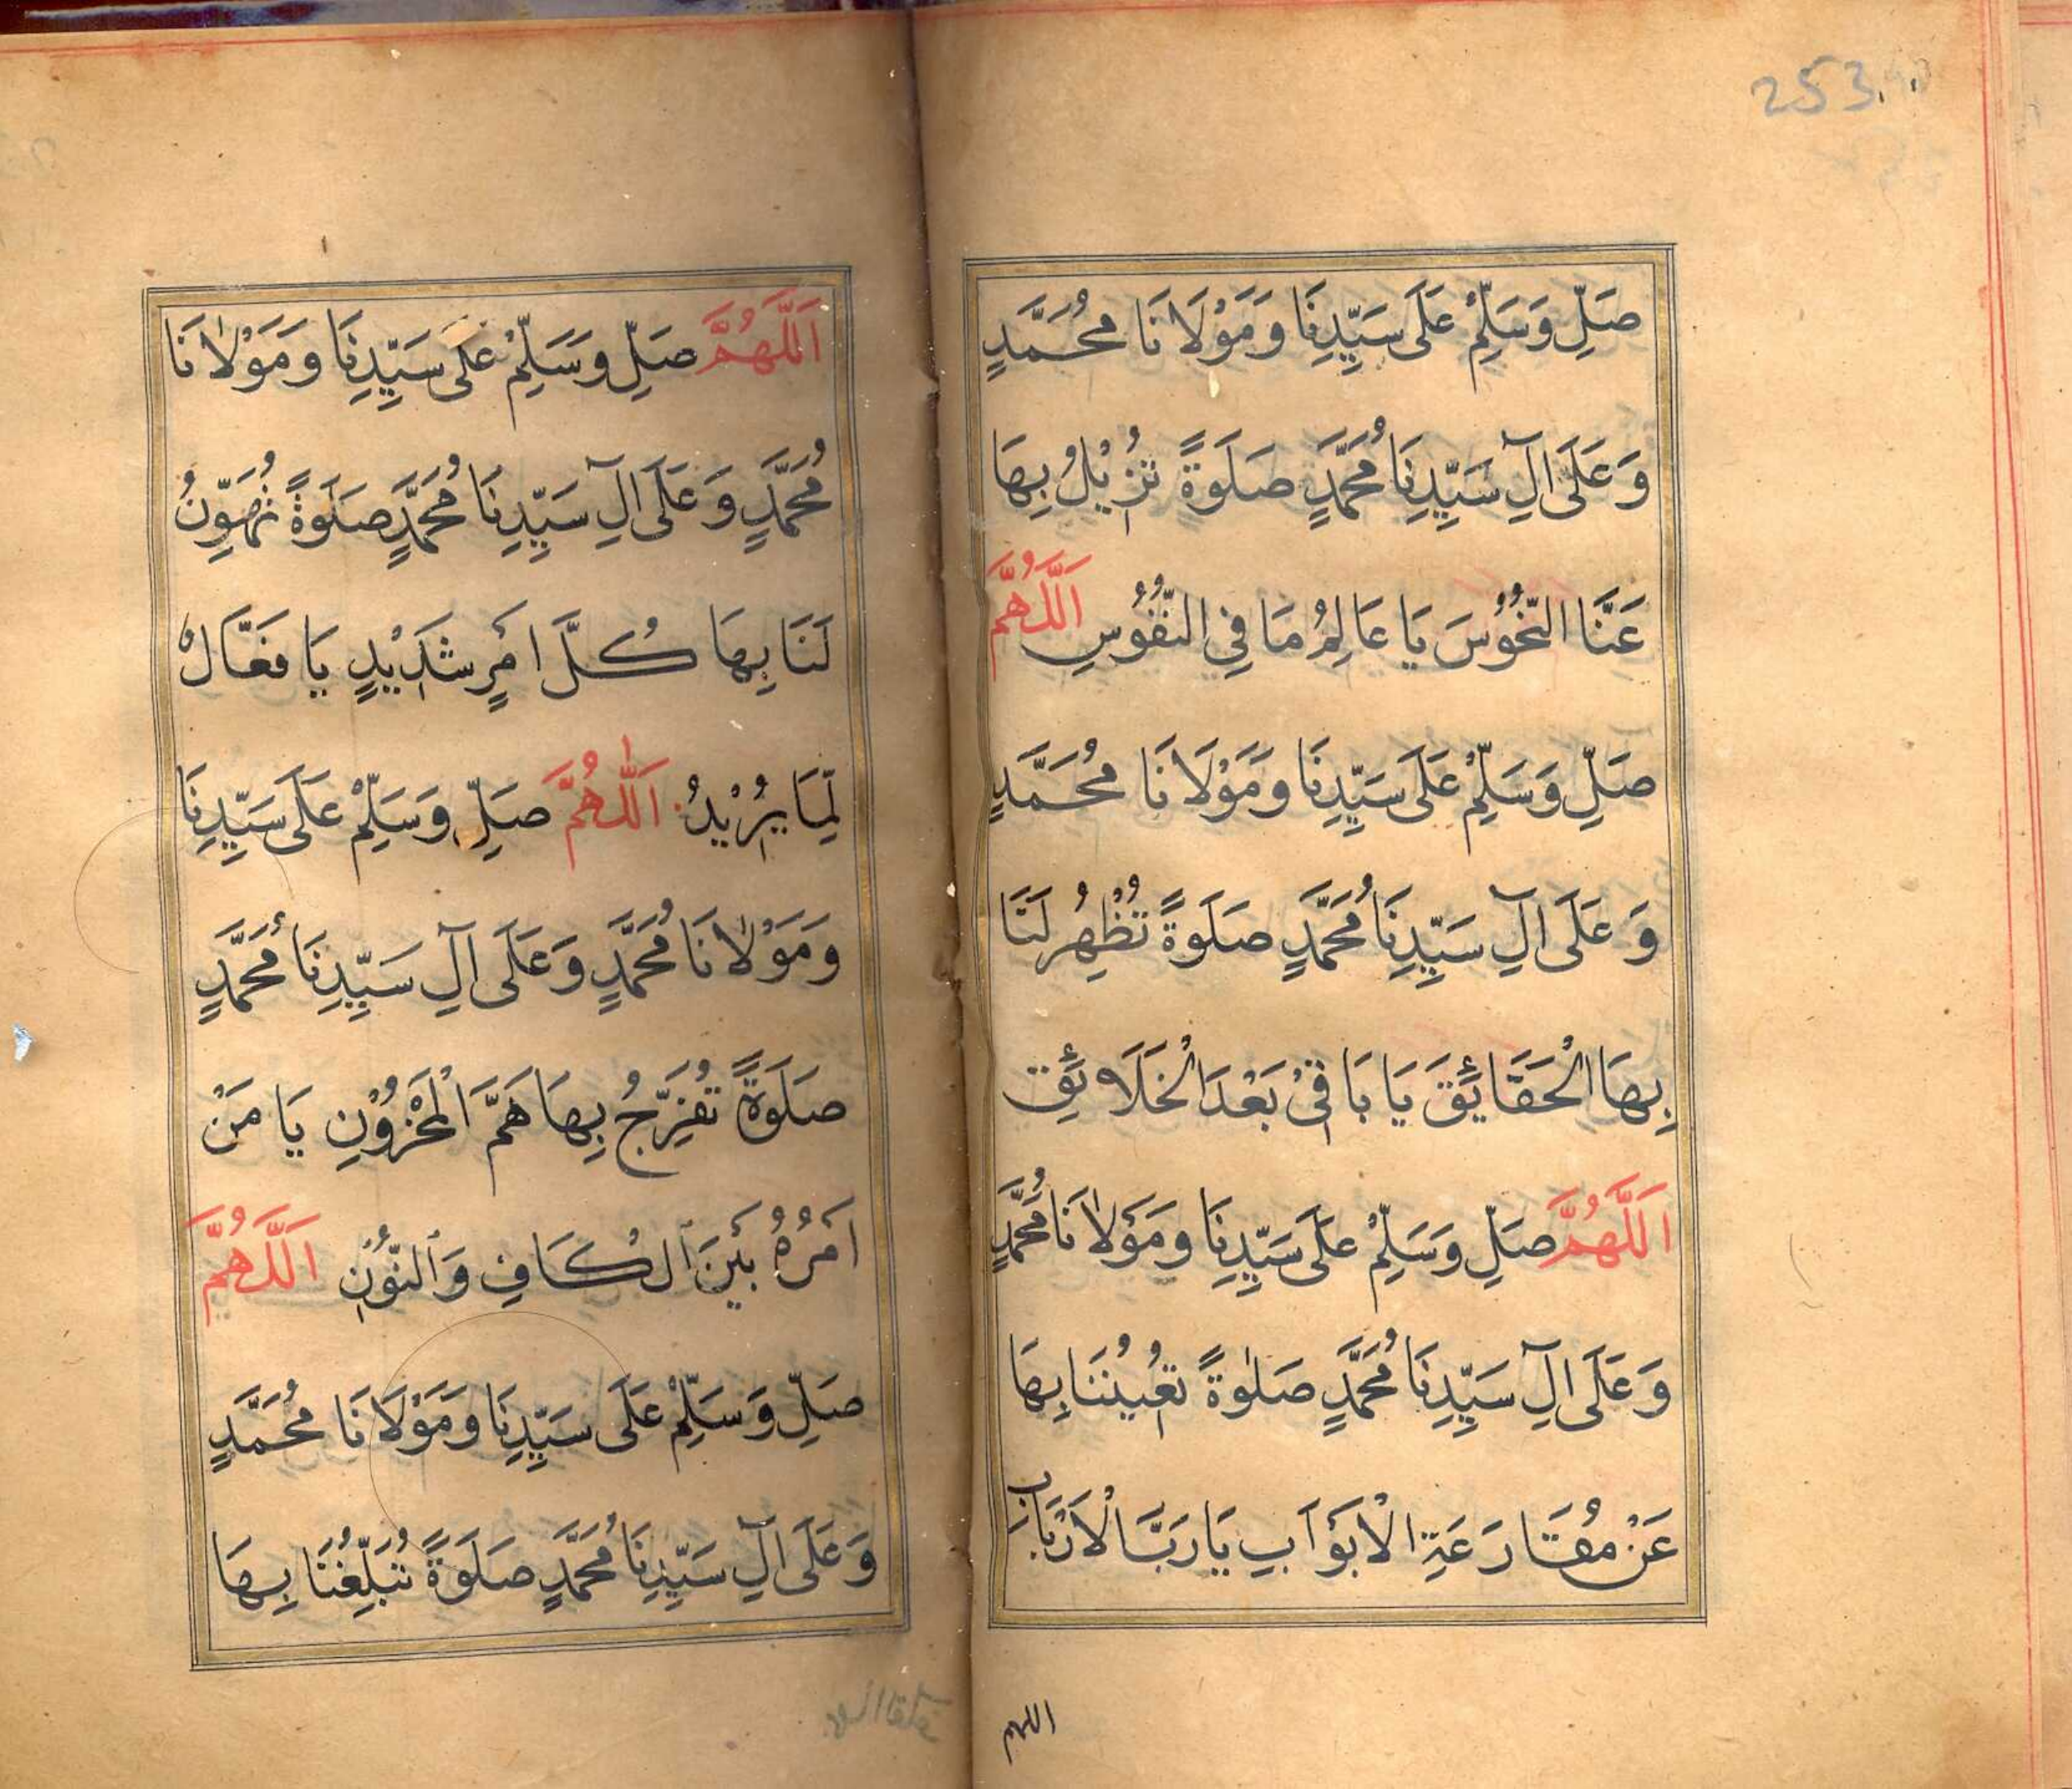 253
صَلِّ وَسَلِّمْ عَلَى سَيِّدِنَا وَمَوْلَانَا مُحَمَّدٍ
وَعَلَى اٰلِ سَيِّدِنَا مُحَمَّدٍ صَلَوةً تُزِيْلُ بِهَا
عَنَّا النُّحُوْسَ يَا عَالِمُ مَا فِي النُّفُوْسِ اَللّٰهُمَّ
صَلِّ وَسَلِّمْ عَلَى سَيِّدِنَا وَمَوْلَانَا مُحَمَّدٍ
وَعَلَى اٰلِ سَيِّدِنَا مُحَمَّدٍ صَلَوةً تُظْهِرُ لَنَا
بِهَا الْحَقَائِقَ يَا بَاقِىْ بَعْدَ الْخَلَائِقِ
اَللّٰهُمَّ صَلِّ وَسَلِّمْ عَلَى سَيِّدِنَا وَمَوْلٰانَا مُحَمَّدٍ
وَعَلَى اٰلِ سَيِّدِنَا مُحَمَّدٍ صَلٰوةً تُعِيْنُنَا بِهَا
عَنْ مُقَارَعَةِ الْاَبْوَابِ يَا رَبَّ الْاَرْبَابِ
اللهم
اَللّٰهُمَّ صَلِّ وَسَلِّمْ عَلَى سَيِّدِنَا وَمَوْلٰانَا
مُحَمَّدٍ وَعَلَى اٰلِ سَيِّدِنَا مُحَمَّدٍ صَلَوةً تُهَوِّنُ
لَنَا بِهَا كُلَّ اَمْرٍ شَدِيْدٍ يَا فَعَّالُ
لِّمَا يُرِيْدُ اَللّٰهُمَّ صَلِّ وَسَلِّمْ عَلَى سَيِّدِنَا
وَمَوْلٰانَا مُحَمَّدٍ وَعَلَى اٰلِ سَيِّدِنَا مُحَمَّدٍ
صَلَوةً تُفَرِّجُ بِهَا هَمَّ الْمَحْزُوْنِ يَا مَنْ
اَمْرُهُ بَيْنَ الْكَافِ وَالنُّوْنِ اَللّٰهُمَّ
صَلِّ وَسَلِّمْ عَلَى سَيِّدِنَا وَمَوْلَانَا مُحَمَّدٍ
وَعَلَى اٰلِ سَيِّدِنَا مُحَمَّدٍ صَلَوةً تُبَلِّغُنَا بِهَا